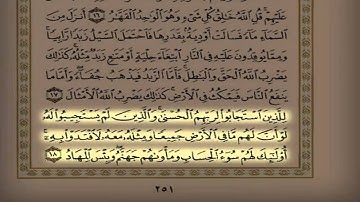 عَلَيْهِمْ قُلِ ٱللَّهُ خَـٰلِقُ كُلِّ شَىْءٍ وَهُوَ ٱلْوَٰحِدُ ٱلْقَهَّـٰرُ ١٦ أَنزَلَ مِنَ
ٱلسَّمَآءِ مَآءً فَسَالَتْ أَوْدِيَةٌۢ بِقَدَرِهَا فَٱحْتَمَلَ ٱلسَّيْلُ زَبَدًا رَّابِيًا
وَمِمَّا يُوقِدُونَ عَلَيْهِ فِى ٱلنَّارِ ٱبْتِغَآءَ حِلْيَةٍ أَوْ مَتَـٰعٍ زَبَدٌ مِّثْلُهُۥ كَذَٰلِكَ
يَضْرِبُ ٱللَّهُ ٱلْحَقَّ وَٱلْبَـٰطِلَ فَأَمَّا ٱلزَّبَدُ فَيَذْهَبُ جُفَآءً وَأَمَّا مَا
يَنفَعُ ٱلنَّاسَ فَيَمْكُثُ فِى ٱلْأَرْضِ كَذَٰلِكَ يَضْرِبُ ٱللَّهُ ٱلْأَمْثَالَ ١٧
لِلَّذِينَ ٱسْتَجَابُوا۟ لِرَبِّهِمُ ٱلْحُسْنَىٰ وَٱلَّذِينَ لَمْ يَسْتَجِيبُوا۟ لَهُۥ
لَوْ أَنَّ لَهُم مَّا فِى ٱلْأَرْضِ جَمِيعًا وَمِثْلَهُۥ مَعَهُۥ لَٱفْتَدَوْا۟ بِهِۦٓ
أُو۟لَـٰٓئِكَ لَهُمْ سُوٓءُ ٱلْحِسَابِ وَمَأْوَىٰهُمْ جَهَنَّمُ وَبِئْسَ ٱلْمِهَادُ ١٨
٢٥١